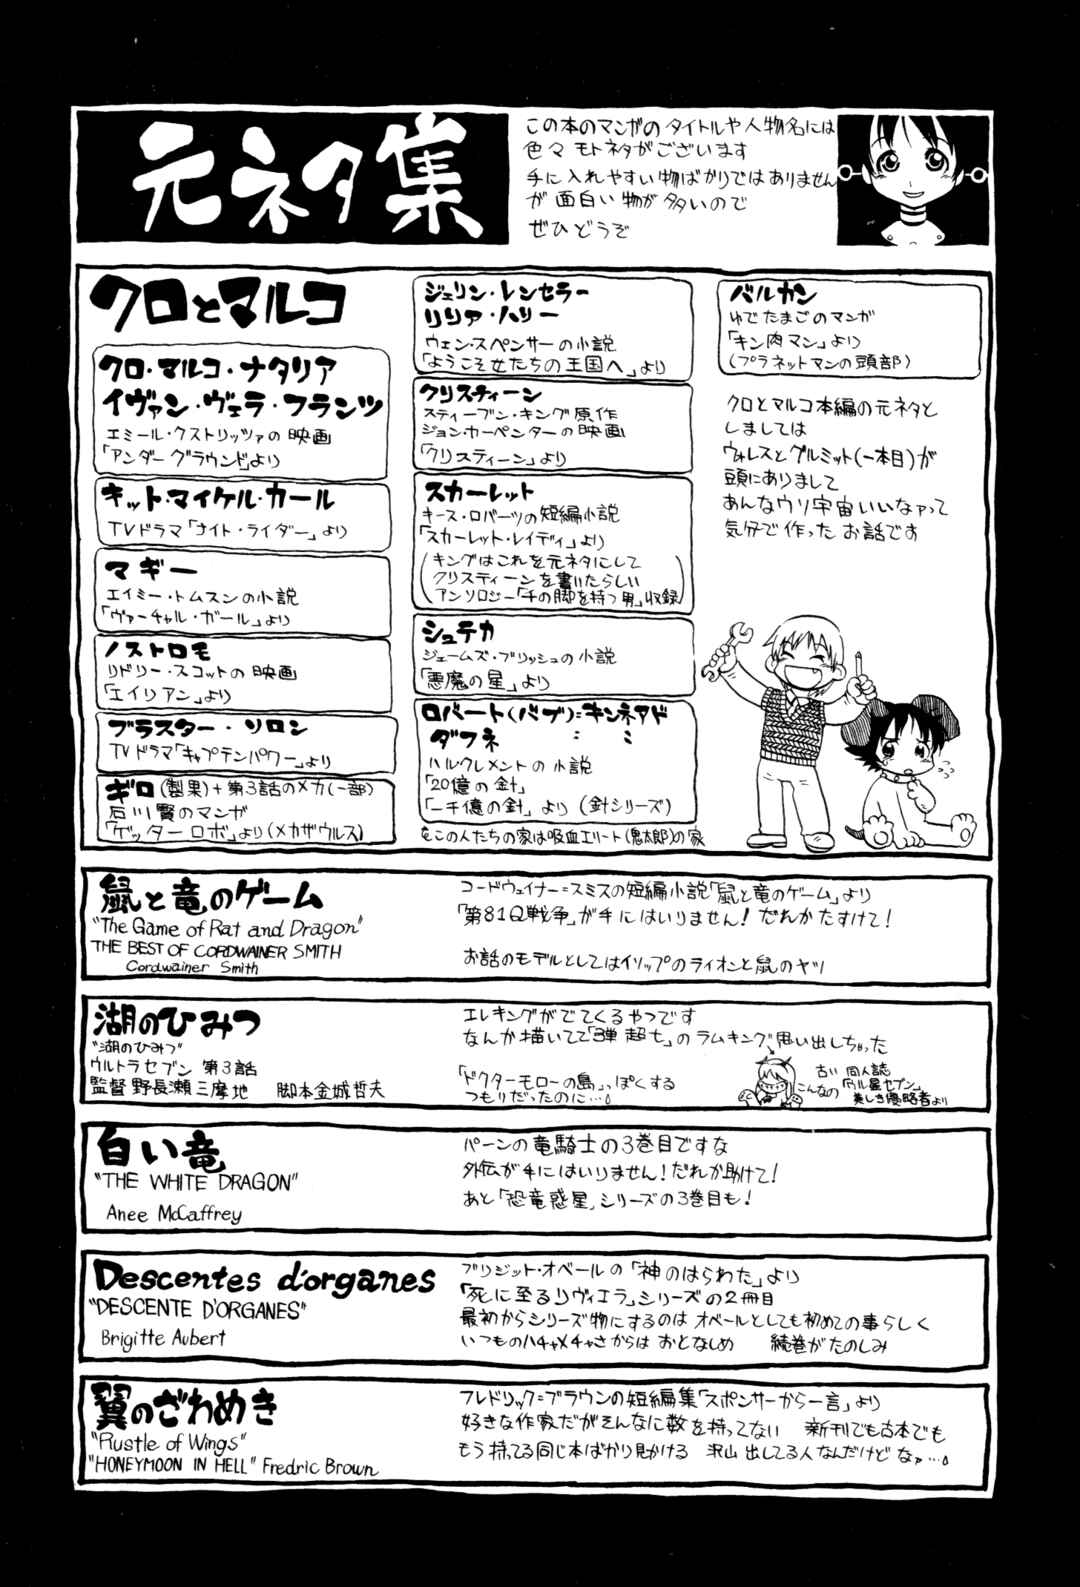 元ネタ集
この本のマンガのタイトルや人物名には
色々モトネタがございます
手に入れやすい物ばかりではありません
が 面白い物が多いので
ぜひどうぞ
クロとマルコ
クロ・マルコ・ナタリア
イヴァン・ヴェラ・フランツ
エミール・クストリッツァの映画
「アンダーグラウンド」より
キット・マイケル・カール
TVドラマ「ナイト・ライダー」より
マギー
エイミー・トムスンの小説
「ヴァーチャル・ガール」より
ノストロモ
リドリー・スコットの映画
「エイリアン」より
ブラスター・ソロン
TVドラマ「キャプテンパワー」より
ギロ(製果)+第3話のメカ(一部)
石川賢のマンガ
「ゲッターロボ」より(メカザウルス)
ジェリン・レンセラー
リリア・ハリー
ウェン・スペンサーの小説
「ようこそ女たちの王国へ」より
クリスティーン
スティーブン・キング原作
ジョン・カーペンターの映画
「クリスティーン」より
スカーレット
キース・ロバーツの短編小説
「スカーレット・レイディ」より
(キングはこれを元ネタにして
クリスティーンを書いたらしい
アンソロジー「千の脚を持つ男」収録)
シュテカ
ジェームズ・ブリッシュの小説
「悪魔の星」より
ロバート(バブ)=キンネアド
ダフネ
ハルクレメントの小説
「20億の針」
「一千億の針」より (針シリーズ)
もこの人たちの家は吸血エリート(鬼太郎)の家
バルカン
ゆでたまごのマンガ
「キン肉マン」より
(プラネットマンの頭部)
クロとマルコ本編の元ネタと
しましては
ウォレスとグルミット(一本目)が
頭にありまして
あんなウソ宇宙いいなァって
気分で作ったお話です
鼠と竜のゲーム
"The Game of Rat and Dragon"
THE BEST OF CORDWAINER SMITH
Cordwainer Smith
コードウェイナー=スミスの短編小説「鼠と竜のゲーム」より
「第81Q戦争」が手にはいりません!だれかたすけて!
お話のモデルとしてはイソップのライオンと鼠のヤツ
湖のひみつ
"湖のひみつ"
ウルトラセブン 第3話
監督 野長瀬三摩地 脚本金城哲夫
エレキングがでてくるやつです
なんか描いてて「3弾 超七」のラムキング思い出しちゃった
「ドクターモローの島」っぽくする
つもりだったのに…。
こんなの
古い同人誌
「ウル星セブン」
美しき侵略者より
白い竜
"THE WHITE DRAGON"
Anee McCaffrey
パーンの竜騎士の3巻目ですな
外伝が手にはいりません!だれか助けて!
あと「恐竜惑星」シリーズの3巻目も!
Descentes d'organes
"DESCENTE D'ORGANES"
Brigitte Aubert
ブリジット・オベールの「神のはらわた」より
「死に至るリヴィエラ」シリーズの2冊目
最初からシリーズ物にするのはオベールとしても初めての事らしく
いつものハチャメチャさからはおとなしめ 続巻がたのしみ
翼のざわめき
"Rustle of Wings"
"HONEYMOON IN HELL" Fredric Brown
フレドリック=ブラウンの短編集「スポンサーから一言」より
好きな作家だがそんなに数を持ってない 新刊でも古本でも
もう持てる同じ本ばかり見かける 沢山出してる人なんだけどなァ…。